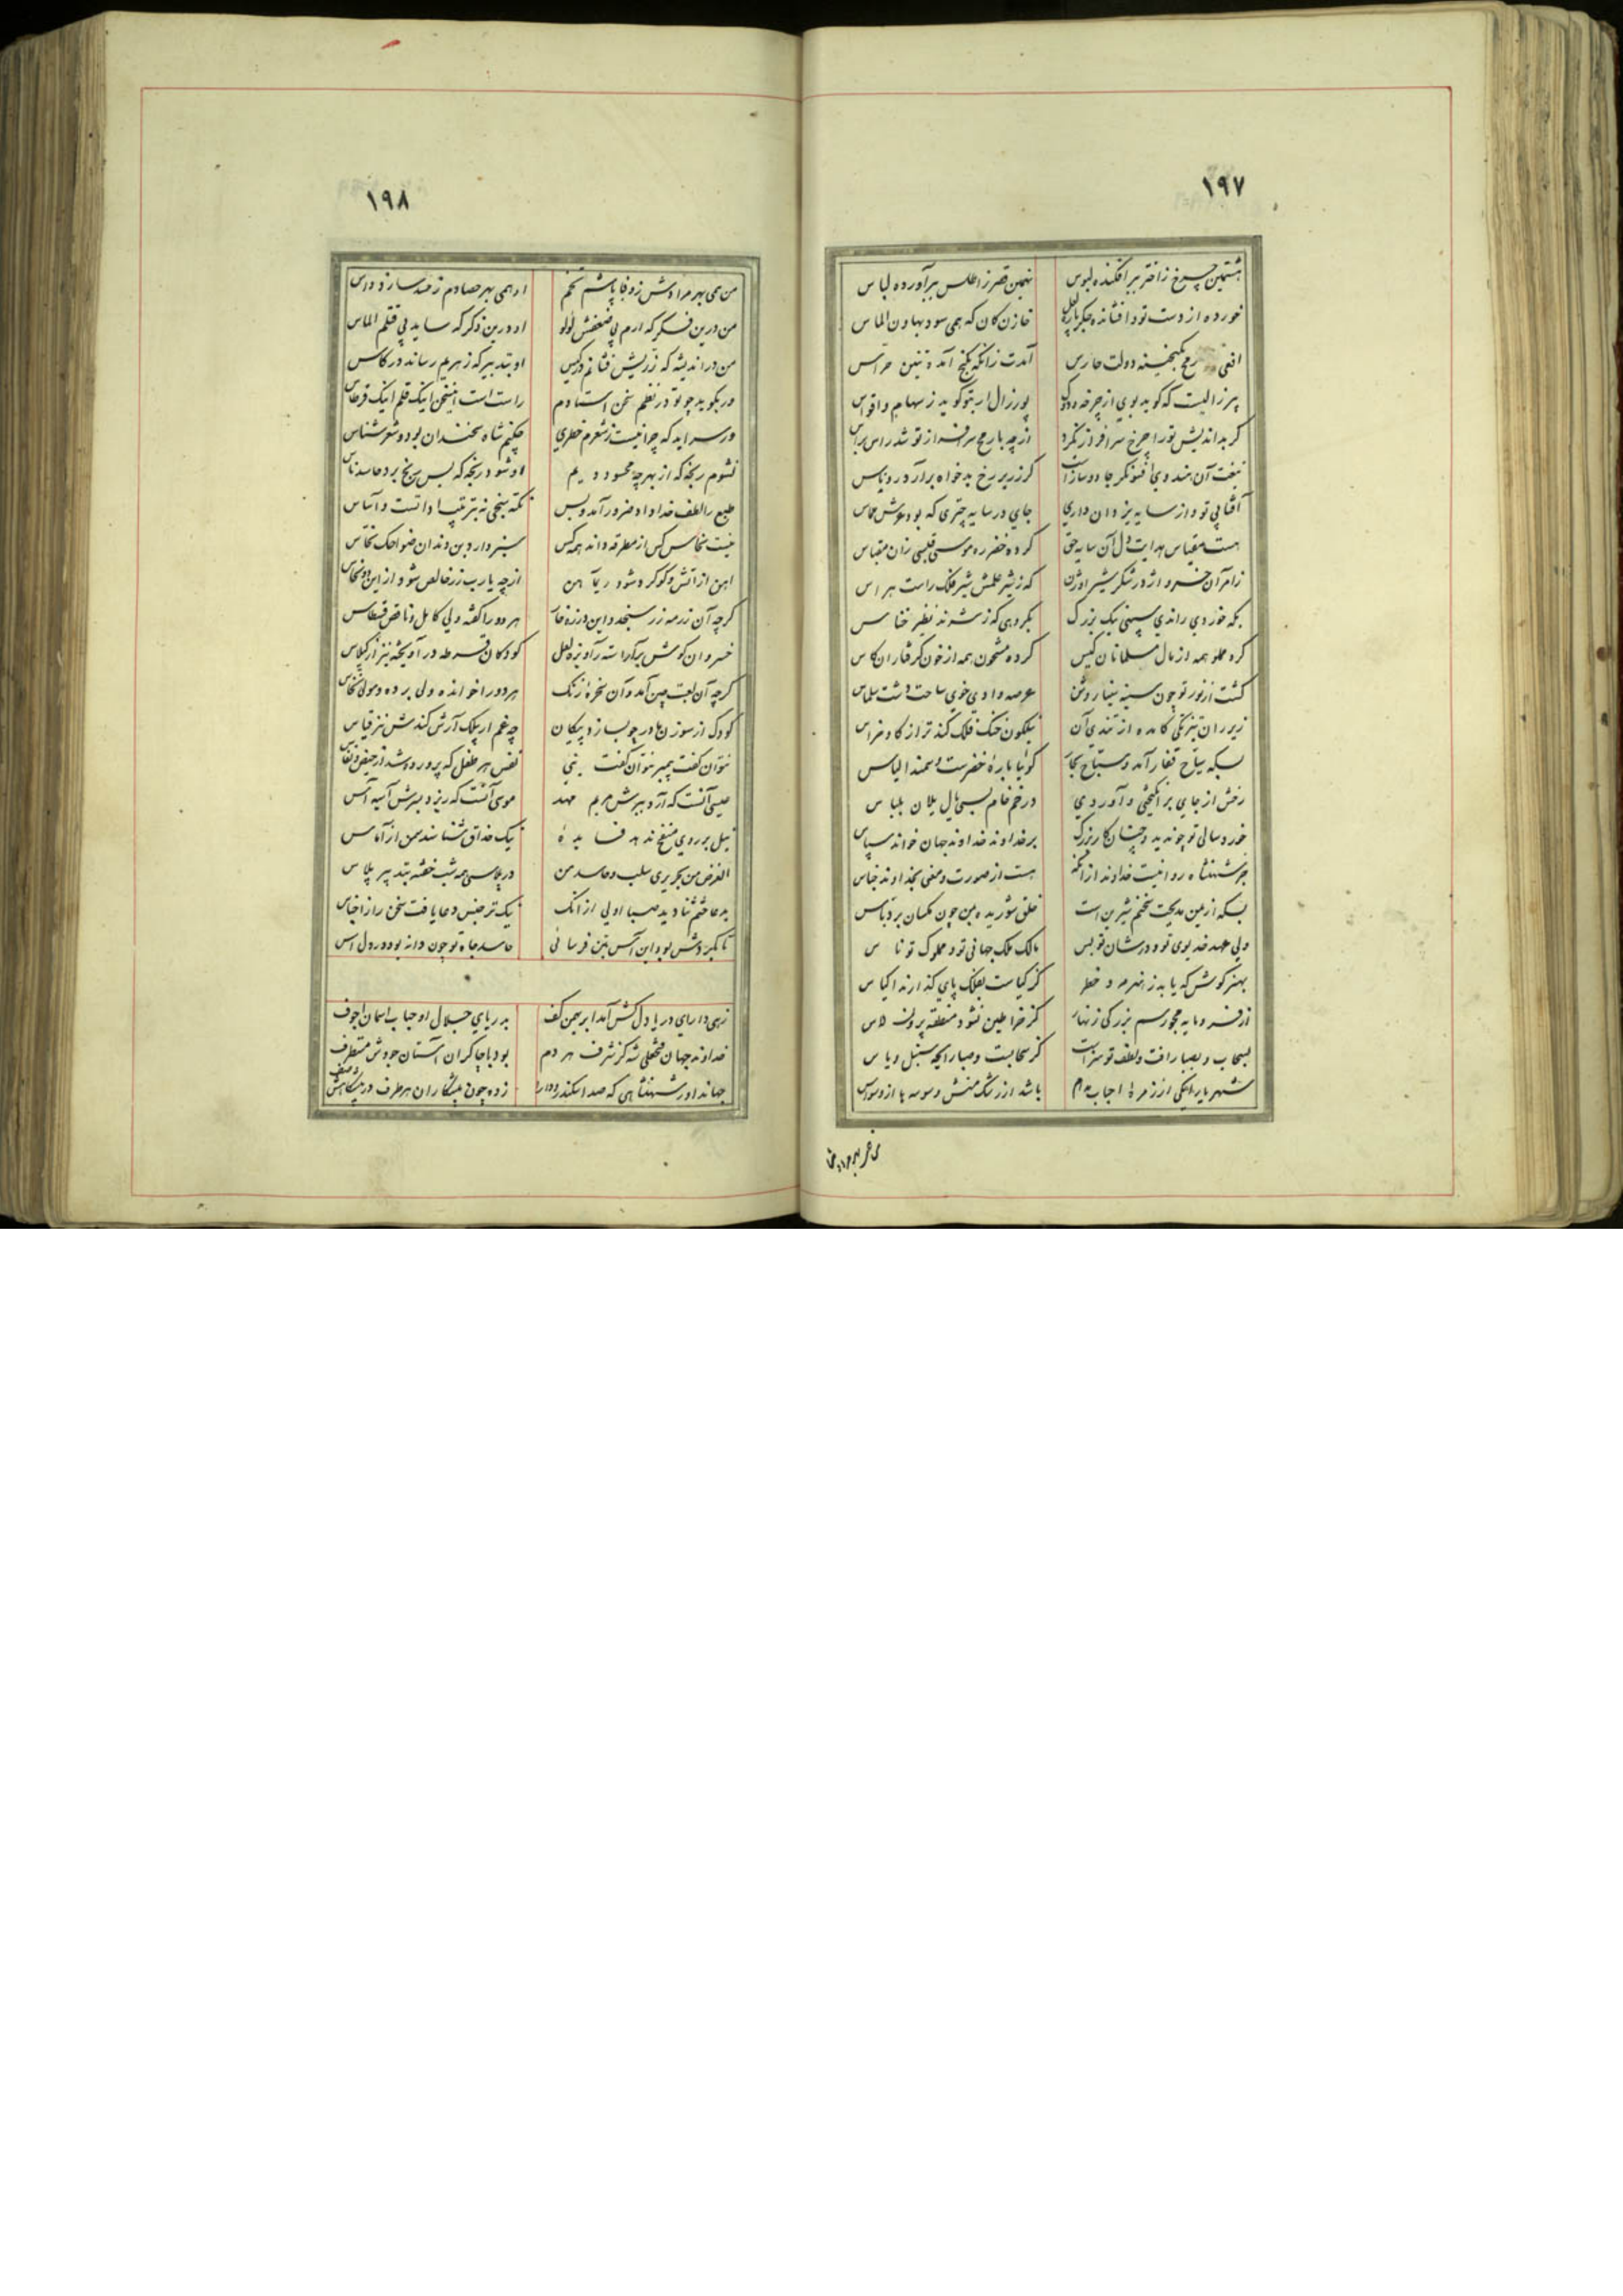 ۱۹۷
هشتمین چرخ ز اختر ببر افکنده لبوس نهمین قصر ز اطلس ببر آورده لباس
خورده از دست تو و افشانده جگر خازن کان که همی سود بهاون الماس
افعی رمح بگنجینه دولت حارس آمدت زانکه بگنج آمد تنین حراس
پیر زالیست که گوید بوی از چرخه پور زال ار بتو گوید ز سهام و اقواس
گر بداندیش تو را چرخ سرافراز نکرد از چه با رمح سرافراز تو شد راس براس
تیغت آن هندوی افسونگر جادوساز است کز زریر رخ بدخواه برآرد روناس
آفتابی تو و از سایه یزدان داری جای در سایه چتری که بود عرش مماس
هست مقیاس هدایت دل آن سایه حق کرده خضر ره موسی قبسی زان مقباس
زامر آن خسرو اژدر شکر شیر اوژن که ز شیر علمش شیر فلک راست هراس
بکه خوردی راندی سپهی نیک بزرگ بگروهی که ز شرند نظیر خناس
کرده مملو همه از مال مسلمانان کیس کرده مشحون همه از خون گرفتاران کاس
گشت از نور تو چون سینه سینا روشن عرصه وادی خوی ساحت دشت سلماس
زیر ران تیزتکی کامده از تندی آن نیلگون خنگ فلک کندتر از گاو خراس
بسکه سیاح قفار آمد و سباح بحار گوئیا باره خضرست و سمند الیاس
رخش از جای برانگیختی و آوردی در خم خام بسی یال یلان بلباس
خوردسالی تو چو ندید و چنان کار بزرگ بر خداوند خداوند جهان خواند سپاس
جز شهنشاه روا نیست خداوند از آنکه هست از صورت و معنی بخداوند جناس
بسکه از یمن مدیحت سخنم شیرین است خلق شوریده بمن چون مگسان بر دبّاس
ولی عهد خدیوی تو و در شان تو بس مالک ملک جهانی تو و مملوک تو ناس
بهنر کوش که یابد ز هنر مرد خطر کز کیاست بفلک پای گذارند اکیاس
از فرومایه مجو رسم بزرگی زنهار کز خراطین نشود منطقه پروین داس
بسحاب و بصبا رافت و لطف تو سزاست کز سحابست و صبا رایحه سنبل و یاس
شهریار ایکی از زمره احباب مدام باشد از رشک منش وسوسه با از وسواس
۱۹۸
من همی بهر مرادش ز وفا پاشم تخم او همی بهر حصادم ز حسد سازد داس
من درین فکر که آرم پی ضعفش لولو او درین ذکر که ساید پی قتلم الماس
من در اندیشه که زر بیش فشانم در کیس او بتدبیر که زهرم رساند در کاس
ور بگوید چو تو در نظم سخن استادم راست است این سخن اینک قلم اینک قرطاس
ور سراید که چرا نیست ز شعرم خطری چکنم شاه سخندان بود و شعرشناس
نشوم رنجه که از بهر چه محسود ویم او شود رنجه که بس رنج برد حاسد ناس
طبع را لطف خداداد ضرور آمد و بس نکته سنجی نه بترتیب اداتست و اساس
نیست نخاس کس از مطرقه داند همه کس شیر دارد بن دندان ضواحک نخاس
آهن از آتش و کوگرد شود ریماهن از چه یارب زر خالص شود از این دو نحاس
گرچه آن زر مه زر سنجد و این ذره خاک هر دو را کفه ولی کامل و ناقص قسطاس
خسروان گوش بیاراسته ز آویزه لعل کودکان قرطه در آویخته نیز از گیلاس
گرچه آن لعبت چین آمد و آن سخره زنگ هر دو را خوانده ولی برده و مولی نخاس
کودک از سوزن مادر چو بسازد پیکان چه غم ار بیلک آرش کندش نیز قیاس
نتوان گفت پیمبر نتوان گفت نبی نفس هر طفل که پرورده شد از حیض و نفاس
عیسی آنست که آرد ببرش مریم مهد موسی آنست که ریزد بسرش آسیه آس
نیل بر روی منفخ ننهد فساید نیک حذاق شناسند سمن از آماس
الغرض من بحریری سلب و حاسد من در پلاسی همه شب خفته بتدبیر پلاس
بدعا ختم ثنا دید صبا اولی از آنک نیکتر جنس دعا یافت سخن را ز اجناس
تا بگردش بود این آس بتن فرسائی حاسد جاه تو چون دانه بود در دل آس
زهی دارای دریا دل کش آمد ابر بهمن کف بدریای جلال او حباب آسمان اجوف
خداوند جهان فتحعلی شه کز شرف هر دم بود با چاکران آستان جودش مستطرف
جهاندار شهنشاهی که صد اسکندر و دارا زده چون پیشکاران هر طرف در پیشگاهش صف